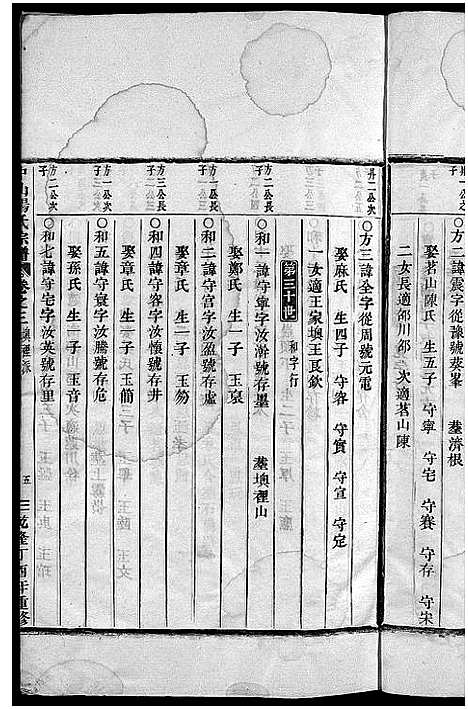 〇方二諱震字從豫號葵峯 葬濟根
娶茗山陳氏 生五子 守寧 守宅 守賽 守存 守宋
二女長適邵川邵 次適茗山陳
次公二
子
〇方三諱全字從周號元電
娶麻氏 生四子 守容 守實 守宣 守定
一女適王家墺王良欽
第三十世 和字行
長公一方
子二
〇和一諱守寧字汝 號存墨 葬墺裡山
娶鄭氏 生一子 玉
長公二方
三公三
〇和二諱守宮字汝盈號存虛
娶章氏 生一子 玉
長公三方
子二三
〇和四諱守容字汝懷號存井
娶章氏 生一子 玉簡
次公一方
〇和五諱守寰字汝騰號存危
娶孫氏 生一子 玉音
次公二方
子
〇和七諱守宅字汝英號存里
山湯氏宗譜 卷之三 墺裡派 五 隆丁酉年重修